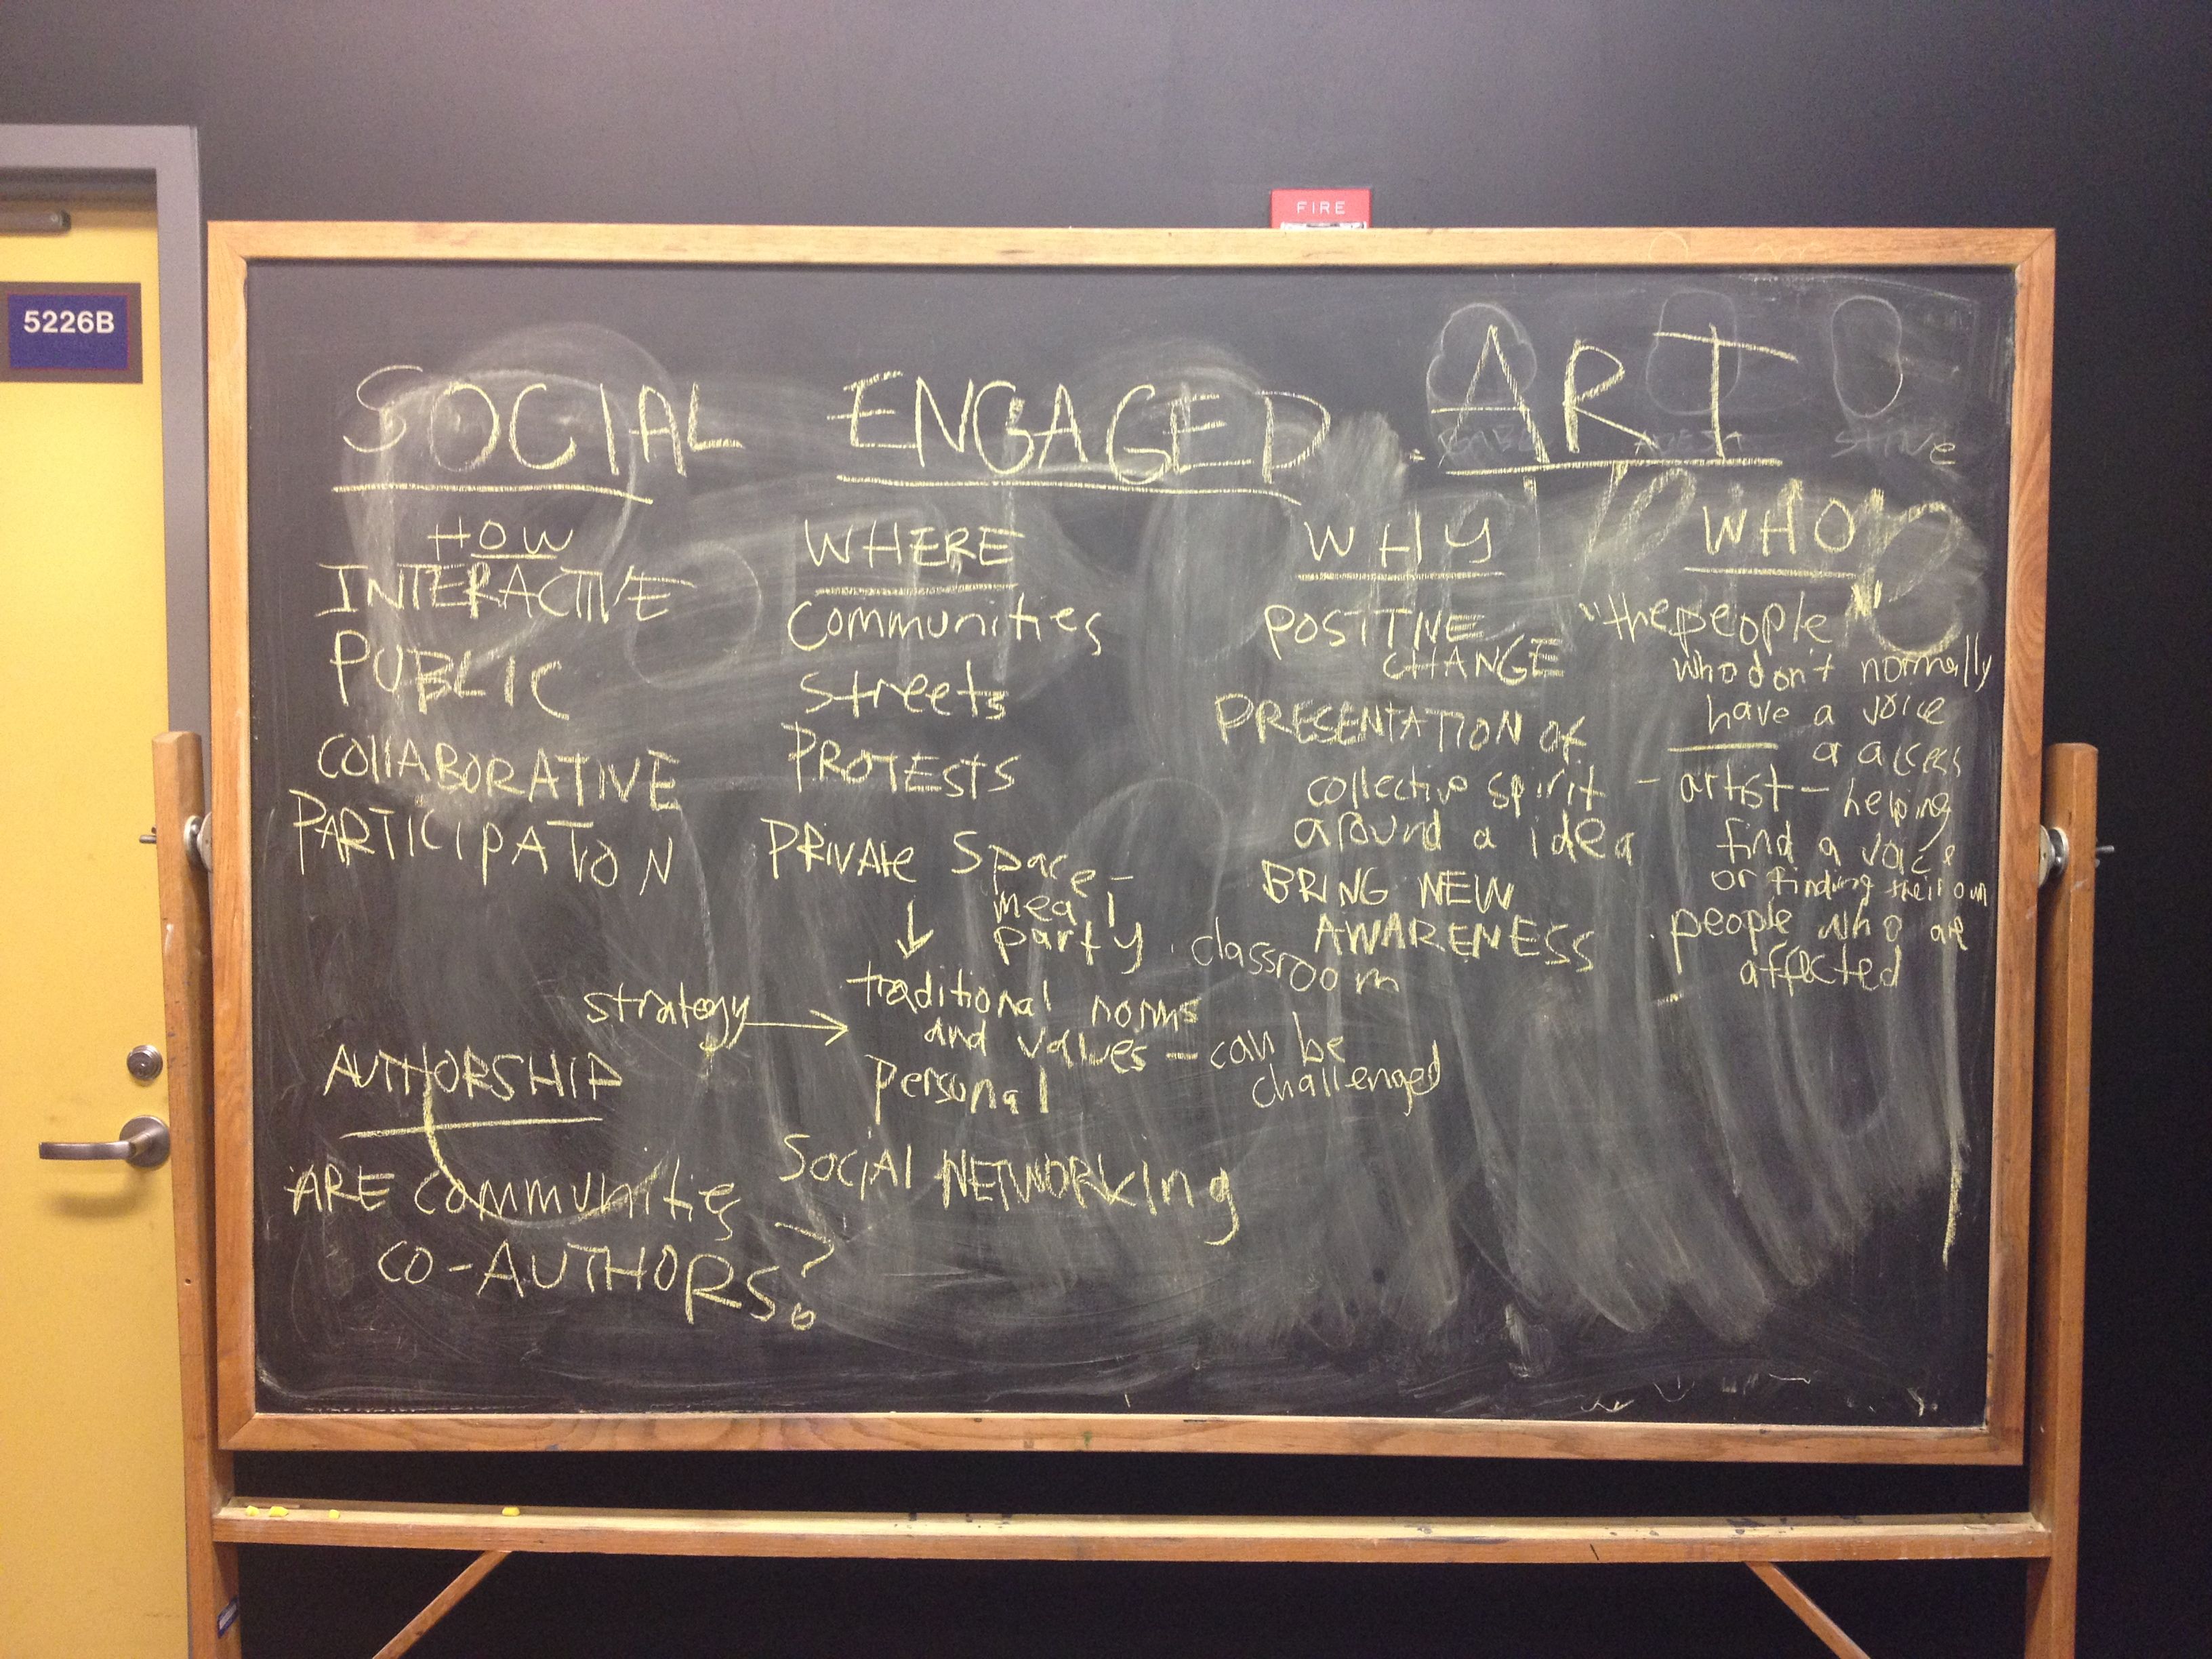 FIRE
5226B
SOCIAL ENGAGED ART
HOW
INTERACTIVE
PUBLIC
COllABORATIVE
PARTICIPATION
AUTHORSHIP
ARE communities
CO-AUTHORS?
WHERE
Communities
Streets
PROTESTS
PRIVATE Space -
meal
party . classroom
strategy → traditional norms
and values - can be
challenged
Personal
SOCIAl NETWORKing
WHY
POSITIVE
CHANGE
PRESENTATION of
collective spirit
around a idea
BRING NEW
AWARENESS
WHO
"the people"
who don't normally
have a voice
a access
- artist - helping
find a voice
or finding their own
. people who are
affected